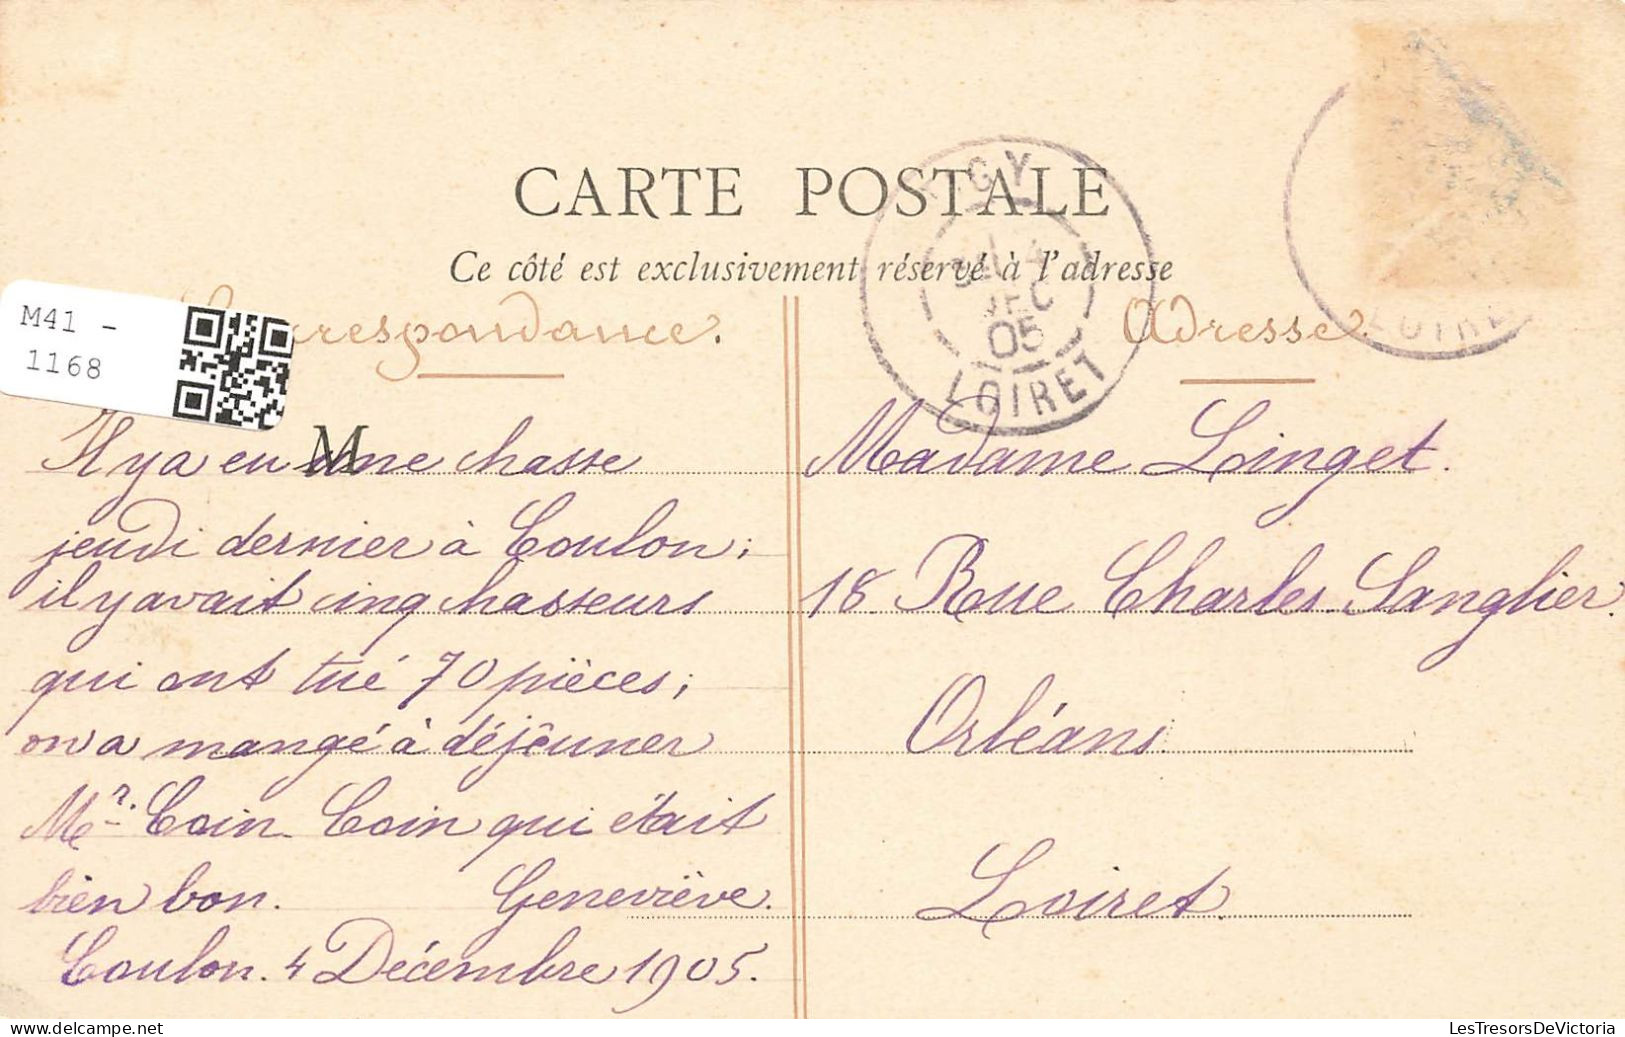 CARTE POSTALE
Ce côté est exclusivement réservé à l'adresse
M41 -
1168
Correspondance.
Adresse.
GY
4
DEC
05
LOIRET
LOIRET
M
Il y a eu une chasse
jeudi dernier à Coulon;
il y avait cinq chasseurs
qui ont tué 70 pièces;
on a mangé à déjeuner
Mr. Coin Coin qui était
bien bon. Geneviève.
Coulon. 4 Décembre 1905.
Madame Linget.
18 Rue Charles Sanglier.
Orléans.
Loiret.
delcampe.net
LesTresorsDeVictoria